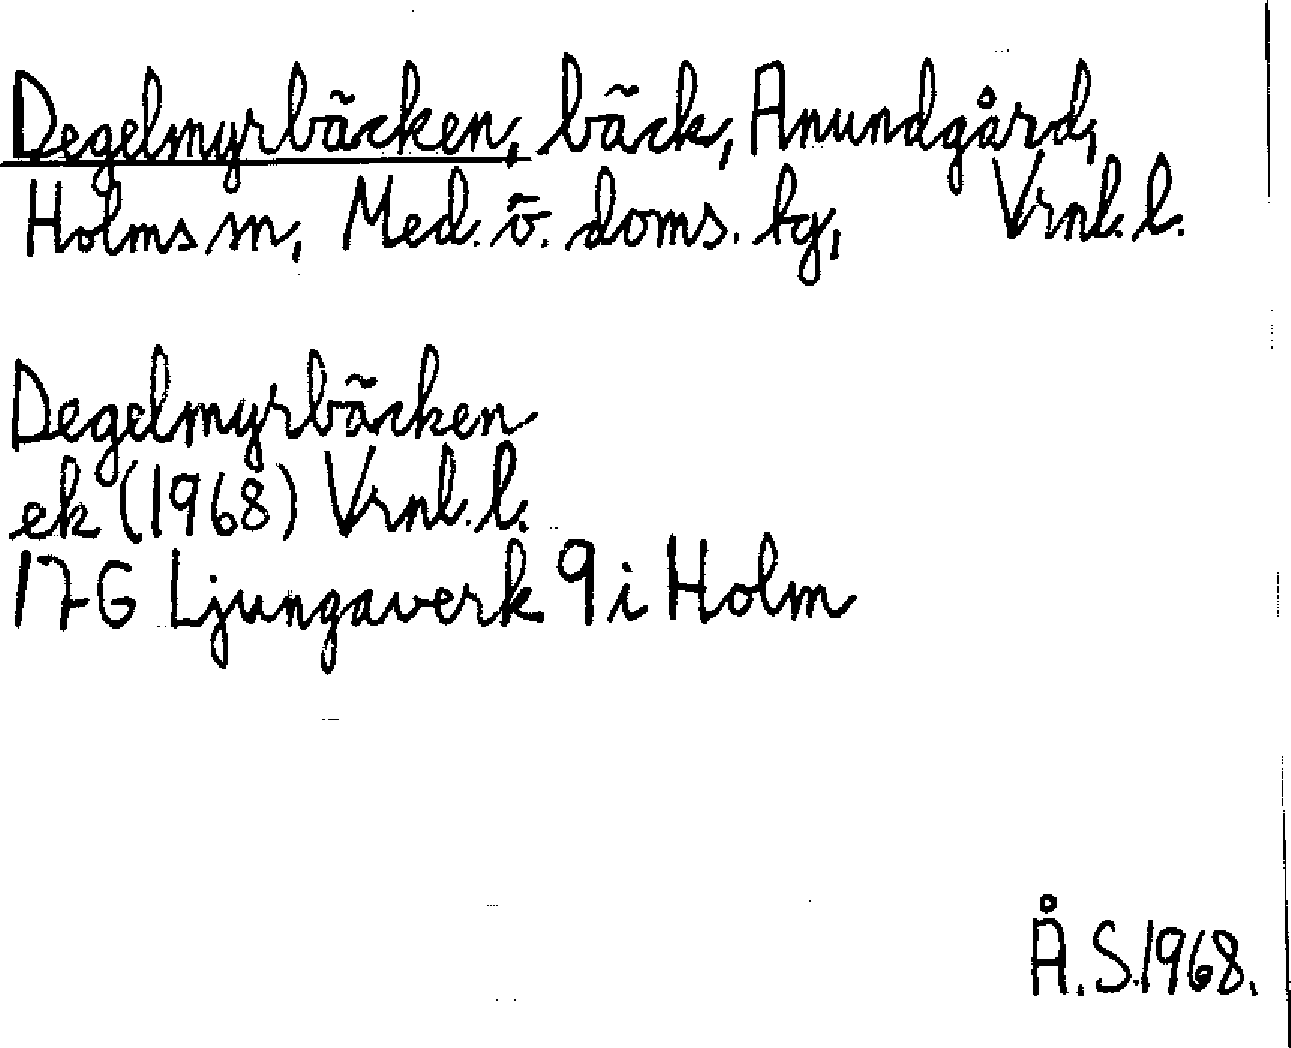 Degelmyrbäcken, bäck, Anundgård,
Holms sn, Med. ö. doms. tg, Vrnl. l.
Degelmyrbäcken
ek (1968) Vrnl. l.
17G Ljungaverk 9i Holm
Å. S. 1968.